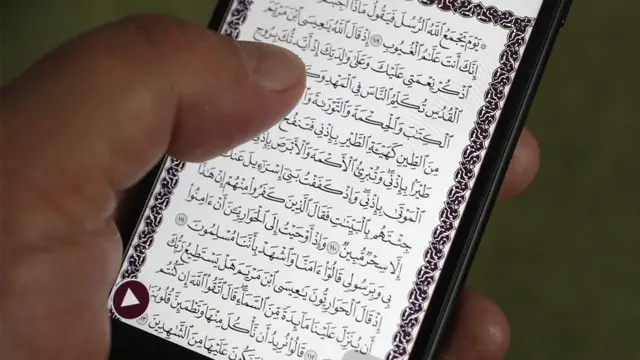 ۞ يَوْمَ يَجْمَعُ ٱللَّهُ ٱلرُّسُلَ فَيَقُولُ مَاذَآ
إِنَّكَ أَنتَ عَلَّٰمُ ٱلْغُيُوبِ ١٠٩ إِذْ قَالَ ٱللَّهُ يَٰعِيسَى ٱبْنَ مَرْيَمَ
ٱذْكُرْ نِعْمَتِى عَلَيْكَ وَعَلَىٰ وَٰلِدَتِكَ إِذْ أَيَّدتُّكَ بِرُوحِ
ٱلْقُدُسِ تُكَلِّمُ ٱلنَّاسَ فِى ٱلْمَهْدِ
ٱلْكِتَٰبَ وَٱلْحِكْمَةَ وَٱلتَّوْرَىٰةَ
مِنَ ٱلطِّينِ كَهَيْـَٔةِ ٱلطَّيْرِ بِإِذْنِى فَتَنفُخُ
طَيْرًۢا بِإِذْنِى وَتُبْرِئُ ٱلْأَكْمَهَ وَٱلْأَبْرَصَ
ٱلْمَوْتَىٰ بِإِذْنِى وَإِذْ كَفَفْتُ بَنِىٓ إِسْرَٰٓءِيلَ عَنكَ
جِئْتَهُم بِٱلْبَيِّنَٰتِ فَقَالَ ٱلَّذِينَ كَفَرُوا۟ مِنْهُمْ إِنْ هَٰذَآ
إِلَّا سِحْرٌ مُّبِينٌ ١١٠ وَإِذْ أَوْحَيْتُ إِلَى ٱلْحَوَارِيِّۦنَ أَنْ ءَامِنُوا۟
بِى وَبِرَسُولِى قَالُوٓا۟ ءَامَنَّا وَٱشْهَدْ بِأَنَّنَا مُسْلِمُونَ ١١١
إِذْ قَالَ ٱلْحَوَارِيُّونَ يَٰعِيسَى ٱبْنَ مَرْيَمَ هَلْ يَسْتَطِيعُ رَبُّكَ
أَن يُنَزِّلَ عَلَيْنَا مَآئِدَةً مِّنَ ٱلسَّمَآءِ قَالَ ٱتَّقُوا۟ ٱللَّهَ إِن كُنتُم
١١٢ قَالُوا۟ نُرِيدُ أَن نَّأْكُلَ مِنْهَا وَتَطْمَئِنَّ قُلُوبُنَا
وَنَكُونَ عَلَيْهَا مِنَ ٱلشَّٰهِدِينَ ١١٣